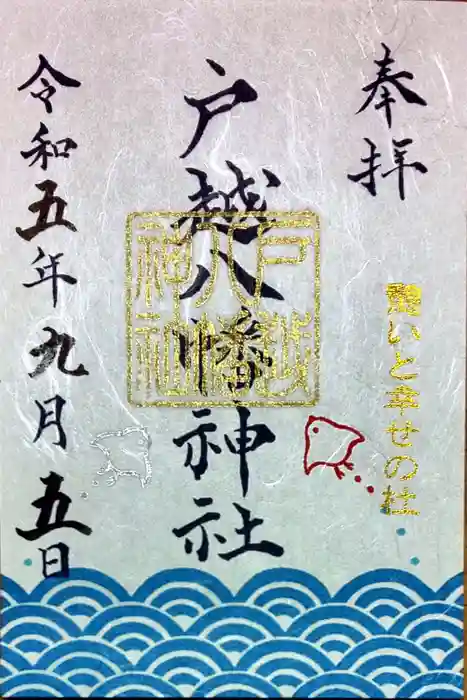 奉拝
いと幸せの社
戸越八幡神社
戸越
八幡
神社
令和五年九月五日